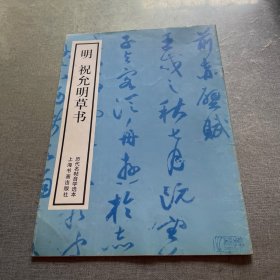 明 祝允明草书
历代名帖自学选本
上海书画出版社
前赤壁賦
壬戌之秋七月既望
子与客泛舟游於赤